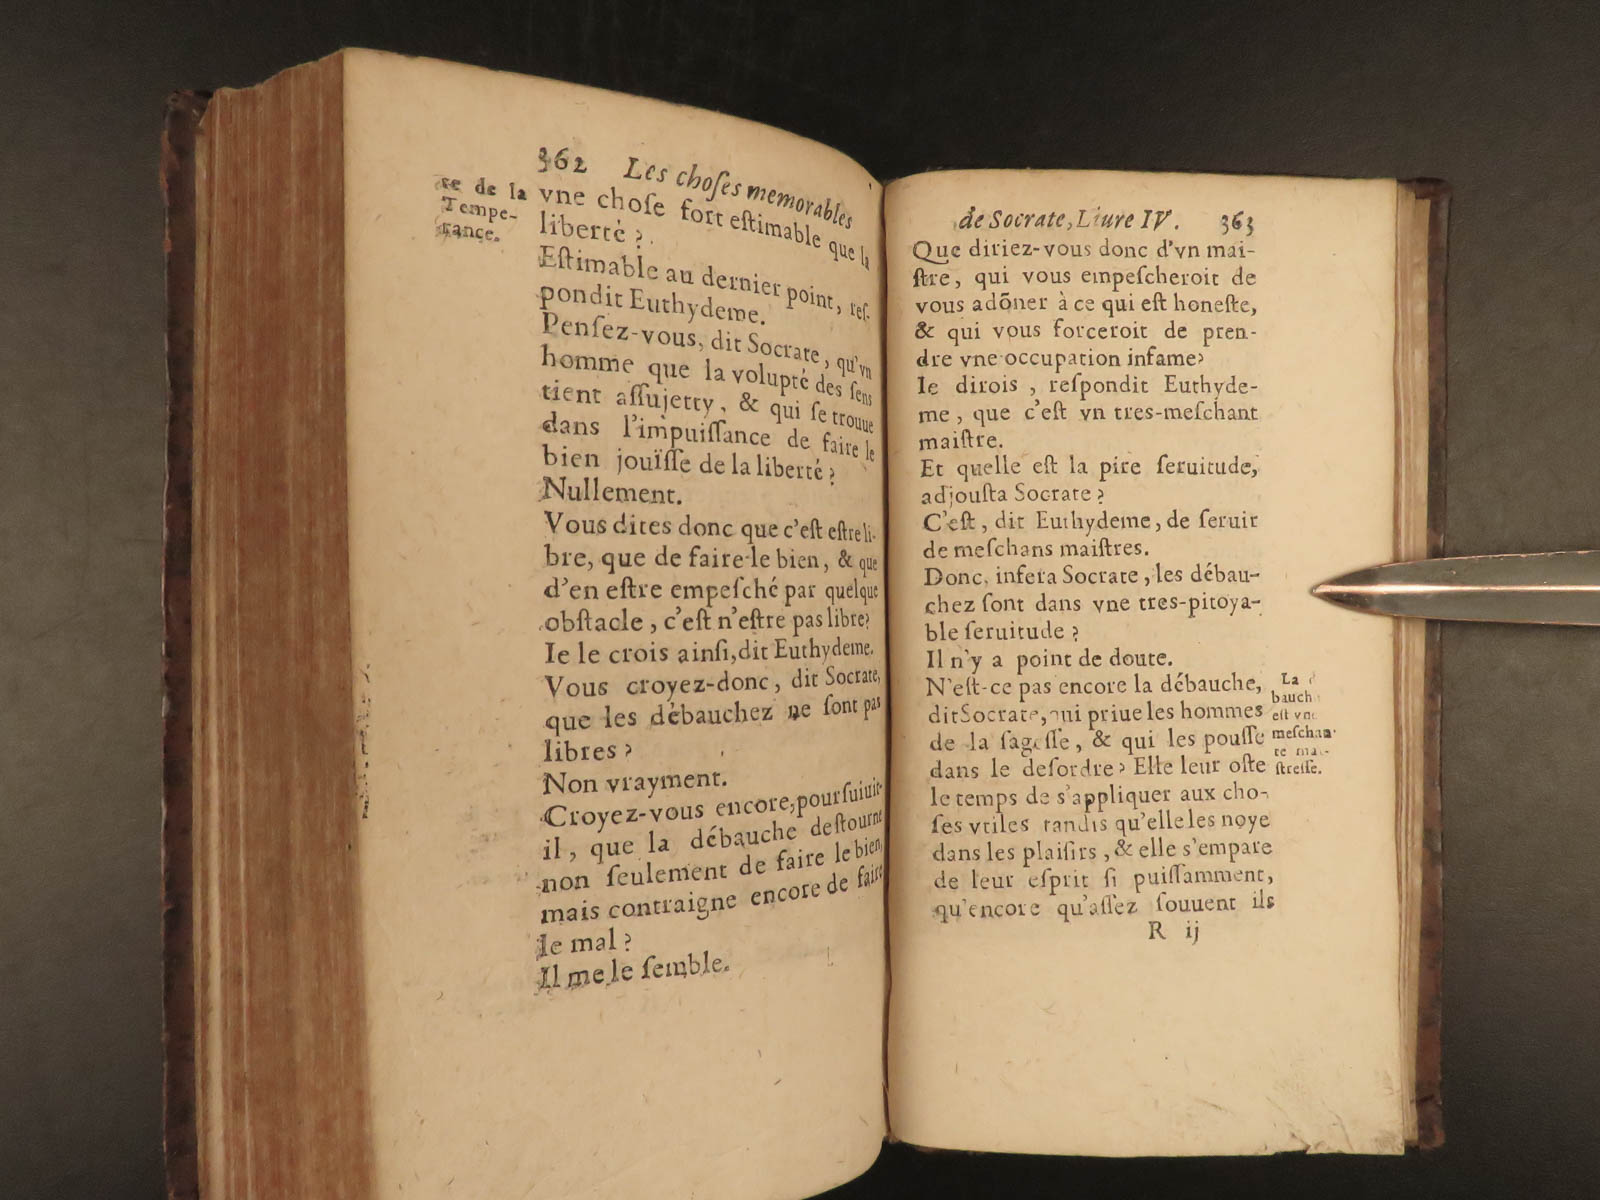 362 Les choſes memorables
te de la
Tempe-
rance.
vne choſe fort eſtimable que la
liberté?
Eſtimable au dernier point, reſ-
pondit Euthydeme.
Penſez-vous, dit Socrate, qu'vn
homme que la volupté des ſens
tient aſſujetty, & qui ſe trouue
dans l'impuiſſance de faire le
bien jouïſſe de la liberté?
Nullement.
Vous dites donc que c'eſt eſtre li-
bre, que de faire le bien, & que
d'en eſtre empeſché par quelque
obſtacle, c'eſt n'eſtre pas libre?
Ie le crois ainſi, dit Euthydeme.
Vous croyez-donc, dit Socrate,
que les débauchez ne ſont pas
libres?
Non vrayment.
Croyez-vous encore, pourſuiuit-
il, que la débauche deſtourne
non ſeulement de faire le bien,
mais contraigne encore de faire
le mal?
Il me le ſemble.
de Socrate, Liure IV. 363
Que diriez-vous donc d'vn mai-
ſtre, qui vous empeſcheroit de
vous adõner à ce qui eſt honeſte,
& qui vous forceroit de pren-
dre vne occupation infame?
Ie dirois, reſpondit Euthyde-
me, que c'eſt vn tres-meſchant
maiſtre.
Et quelle eſt la pire ſeruitude,
adjouſta Socrate?
C'eſt, dit Euthydeme, de ſeruir
de meſchans maiſtres.
Donc, infera Socrate, les débau-
chez ſont dans vne tres-pitoya-
ble ſeruitude?
Il n'y a point de doute.
N'eſt-ce pas encore la débauche,
dit Socrate, qui priue les hommes
de la ſageſſe, & qui les pouſſe
dans le deſordre? Elle leur oſte
le temps de s'appliquer aux cho-
ſes vtiles tandis qu'elle les noye
dans les plaiſirs, & elle s'empare
de leur eſprit ſi puiſſamment,
qu'encore qu'aſſez ſouuent ils
La
bauch
eſt vne
meſchan-
te mai-
ſtreſſe.
R ij